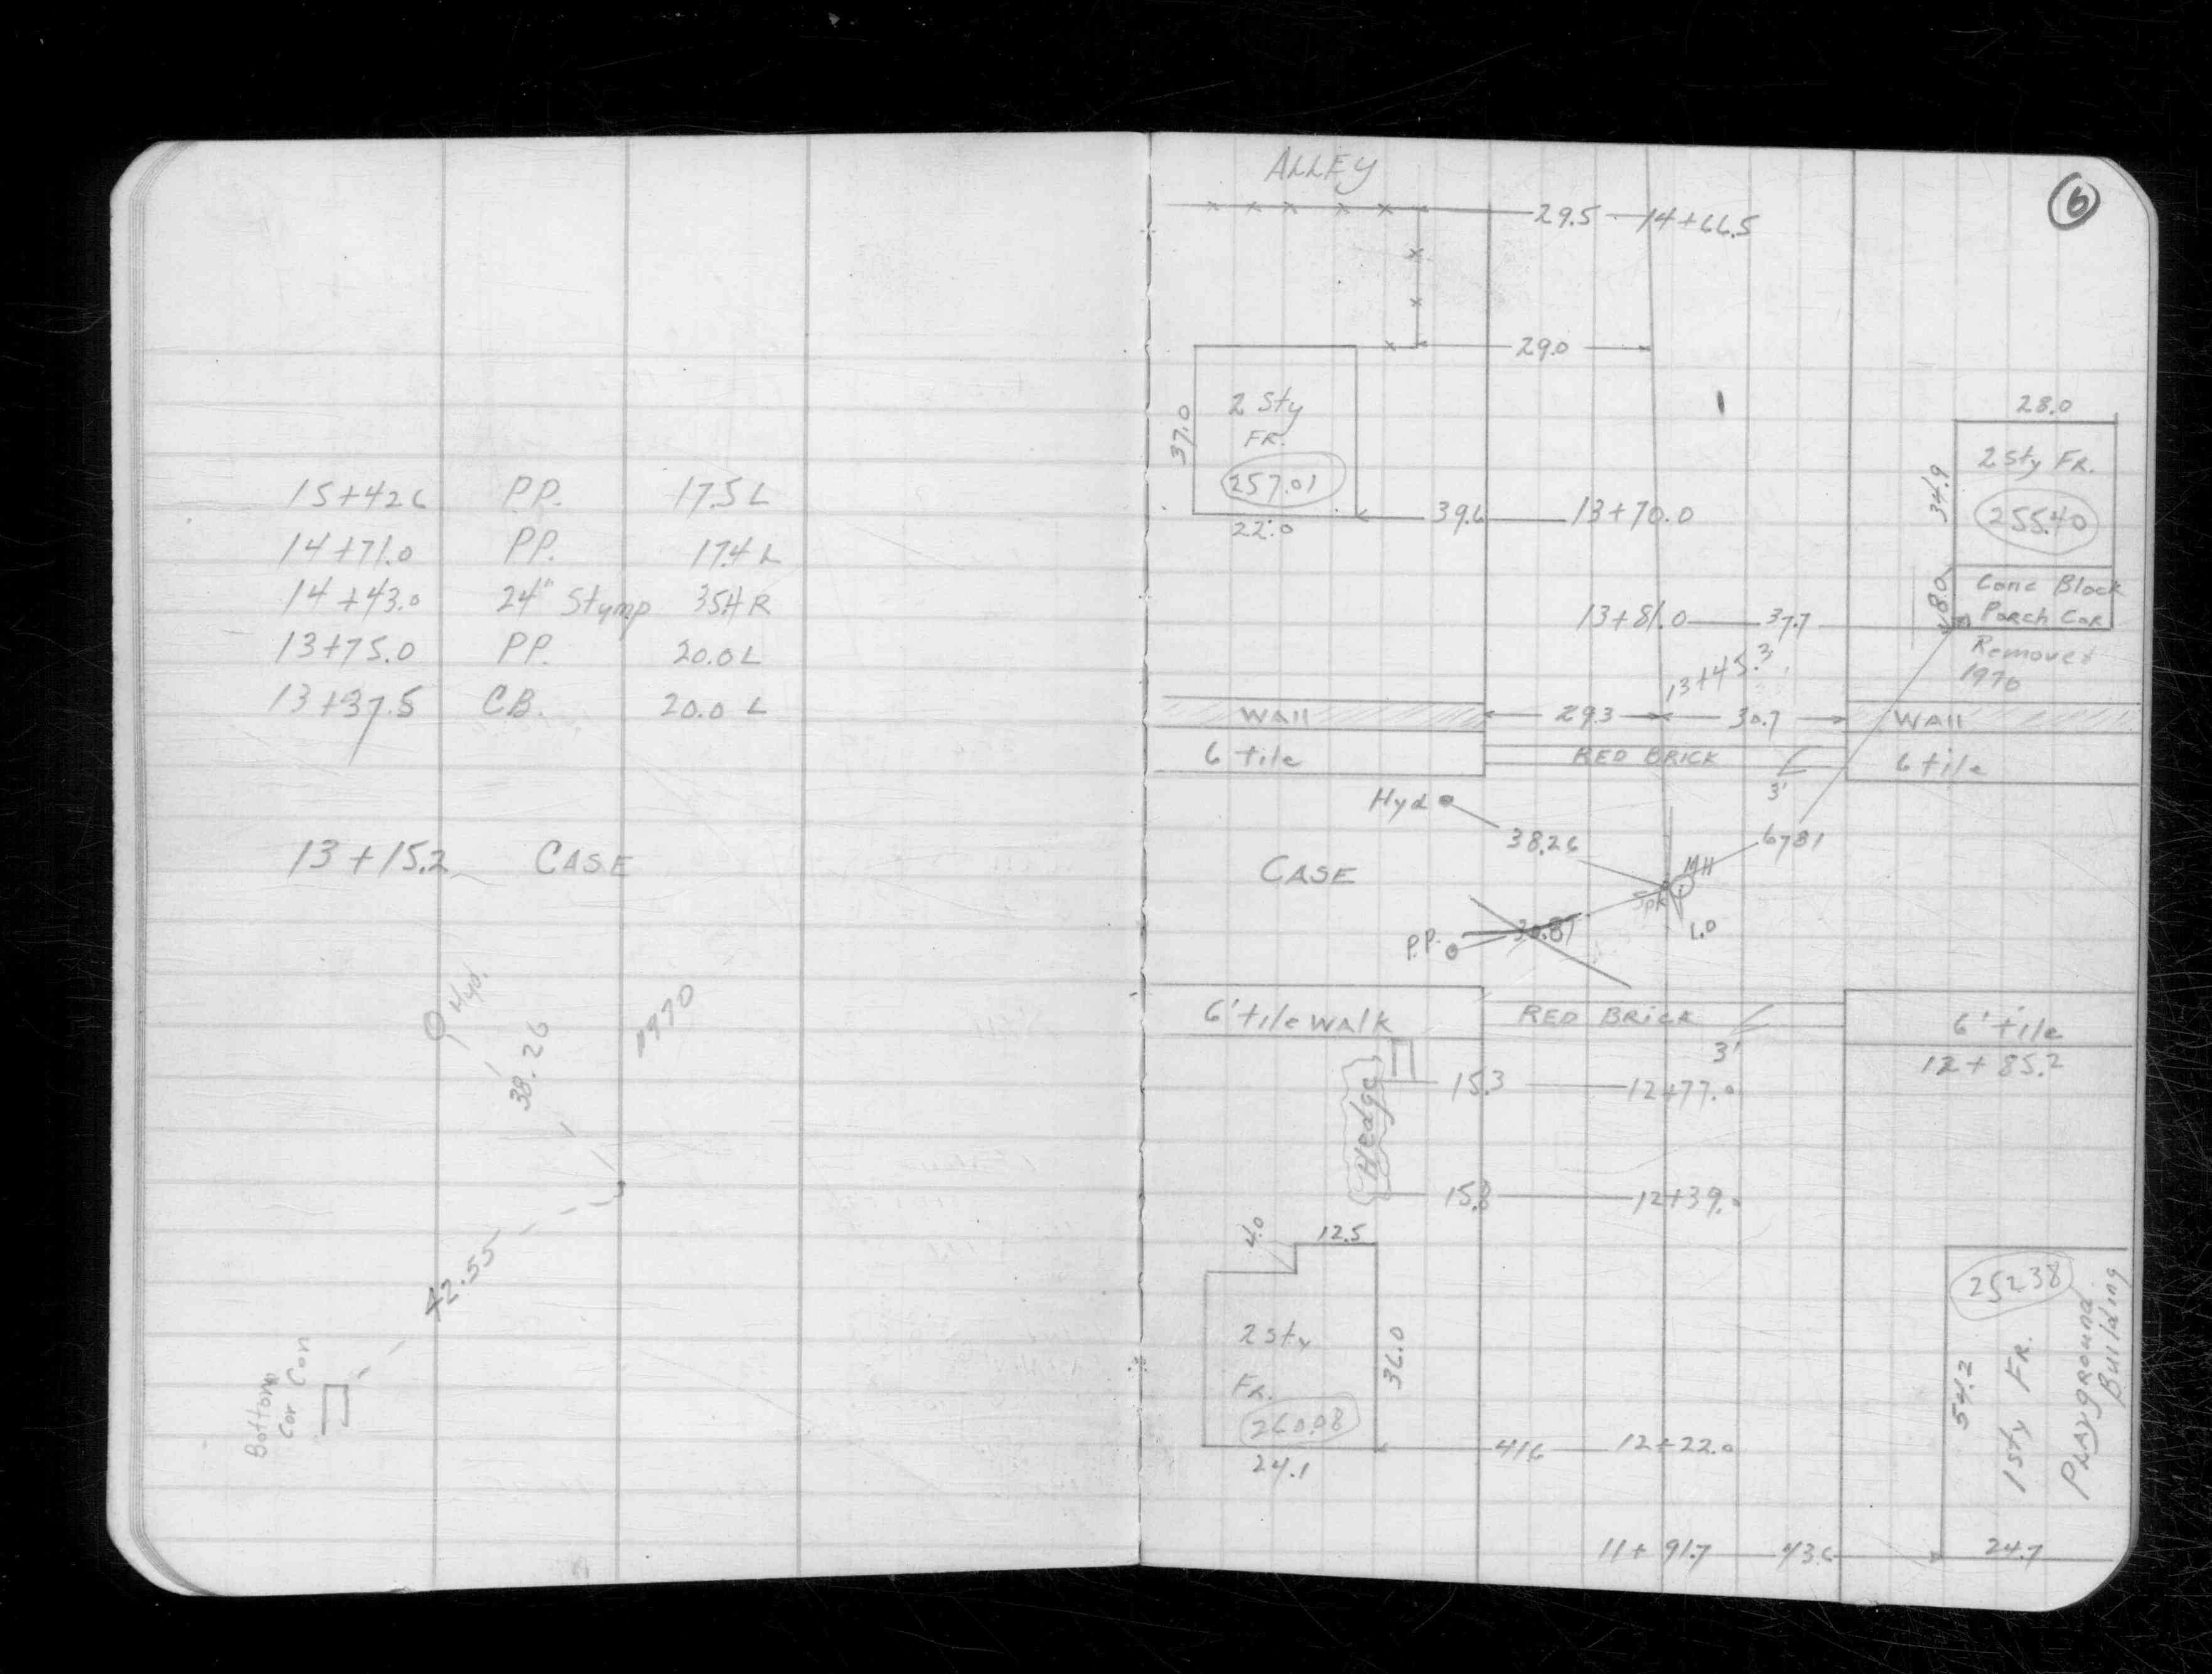 15+42.6 P.P. 17.5 L
14+71.0 P.P. 17.4 L
14+43.0 24" Stump 35.4 R
13+75.0 P.P. 20.0 L
13+37.5 C.B. 20.0 L
13+15.2 CASE
Hyd.
38.26
1970
42.55
Bottom
Cor Con
6
ALLEY
29.5 14+66.5
29.0
37.0
2 Sty
FR.
257.01
22.0
39.6 13+70.0
28.0
34.9
2 Sty FR.
255.40
8.0
Conc Block
Porch Cor
Removed
1970
13+81.0 37.7
13+45.3
WALL 29.3 30.7 WALL
6 tile RED BRICK 6 tile
3'
Hyd
38.26
67.81
CASE
MH
Spk
1.0
P.P.
30.87
6' tile walk RED BRICK 6' tile
3'
12+85.2
Hedge
15.3 12+77.0
15.8 12+39.0
4.0
12.5
2 Sty
FR.
260.08
36.0
24.1
41.6 12+22.0
252.38
54.2
1 Sty FR.
PLAYGROUND
Building
11+91.7 43.6 24.7